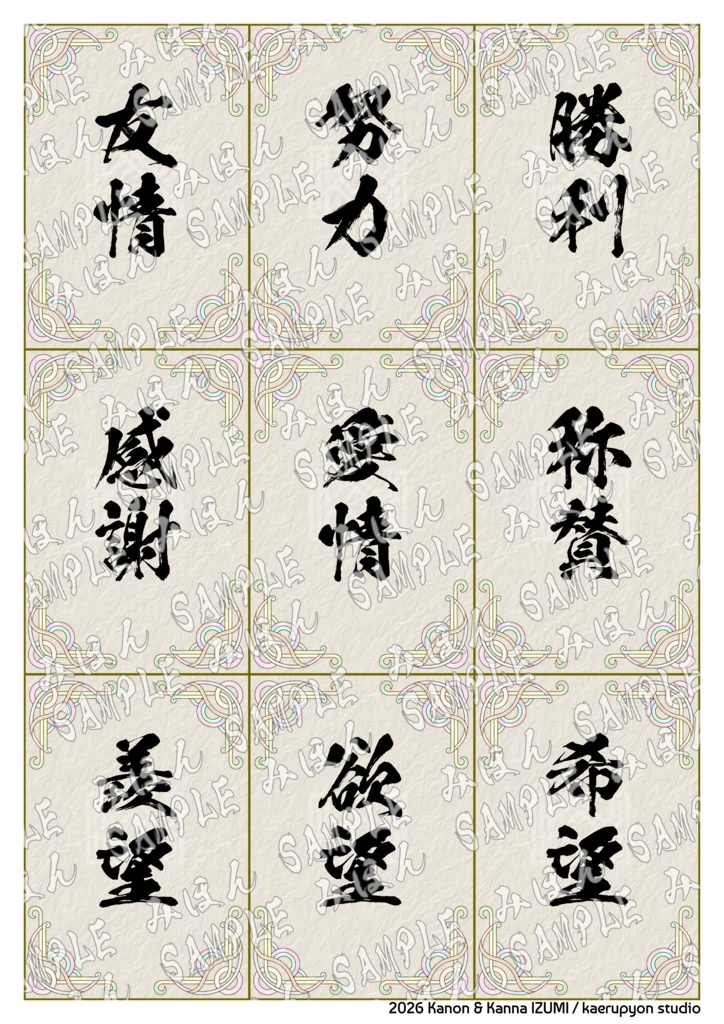 友情
努力
勝利
感謝
愛情
称賛
羨望
欲望
希望
みほん
SAMPLE
2026 Kanon & Kanna IZUMI / kaerupyon studio